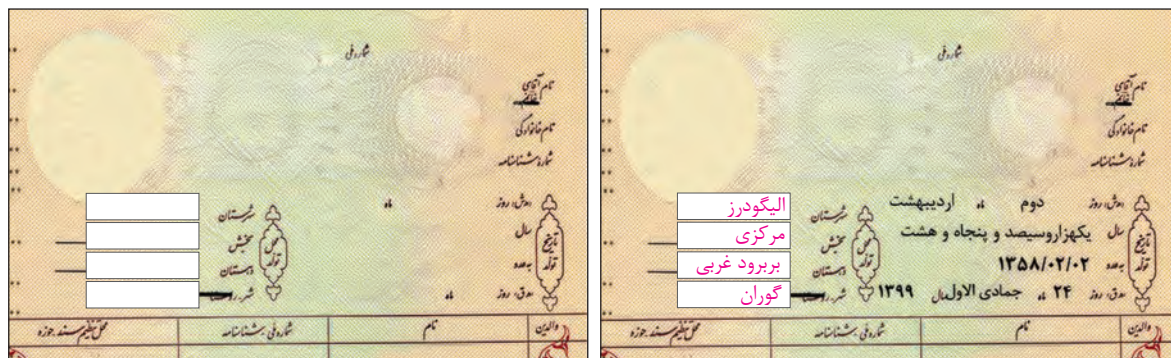 شماره ملی
نام آقای
خانم
نام خانوادگی
شماره شناسنامه
روز دوم ماه اردیبهشت
سال یکهزاروسیصد و پنجاه و هشت
تاریخ تولد
به عدد ۱۳۵۸/۰۲/۰۲
روز ۲۴ ماه جمادی الاول سال ۱۳۹۹
محل تولد
شهرستان الیگودرز
بخش مرکزی
دهستان بربرود غربی
شهر روستا گوران
والدین نام شماره ملی - شناسنامه محل تنظیم سند - حوزه
شماره ملی
نام آقای
خانم
نام خانوادگی
شماره شناسنامه
روز ماه
سال
تاریخ تولد
به عدد
روز ماه
محل تولد
شهرستان
بخش
دهستان
شهر روستا
والدین نام شماره ملی - شناسنامه محل تنظیم سند - حوزه